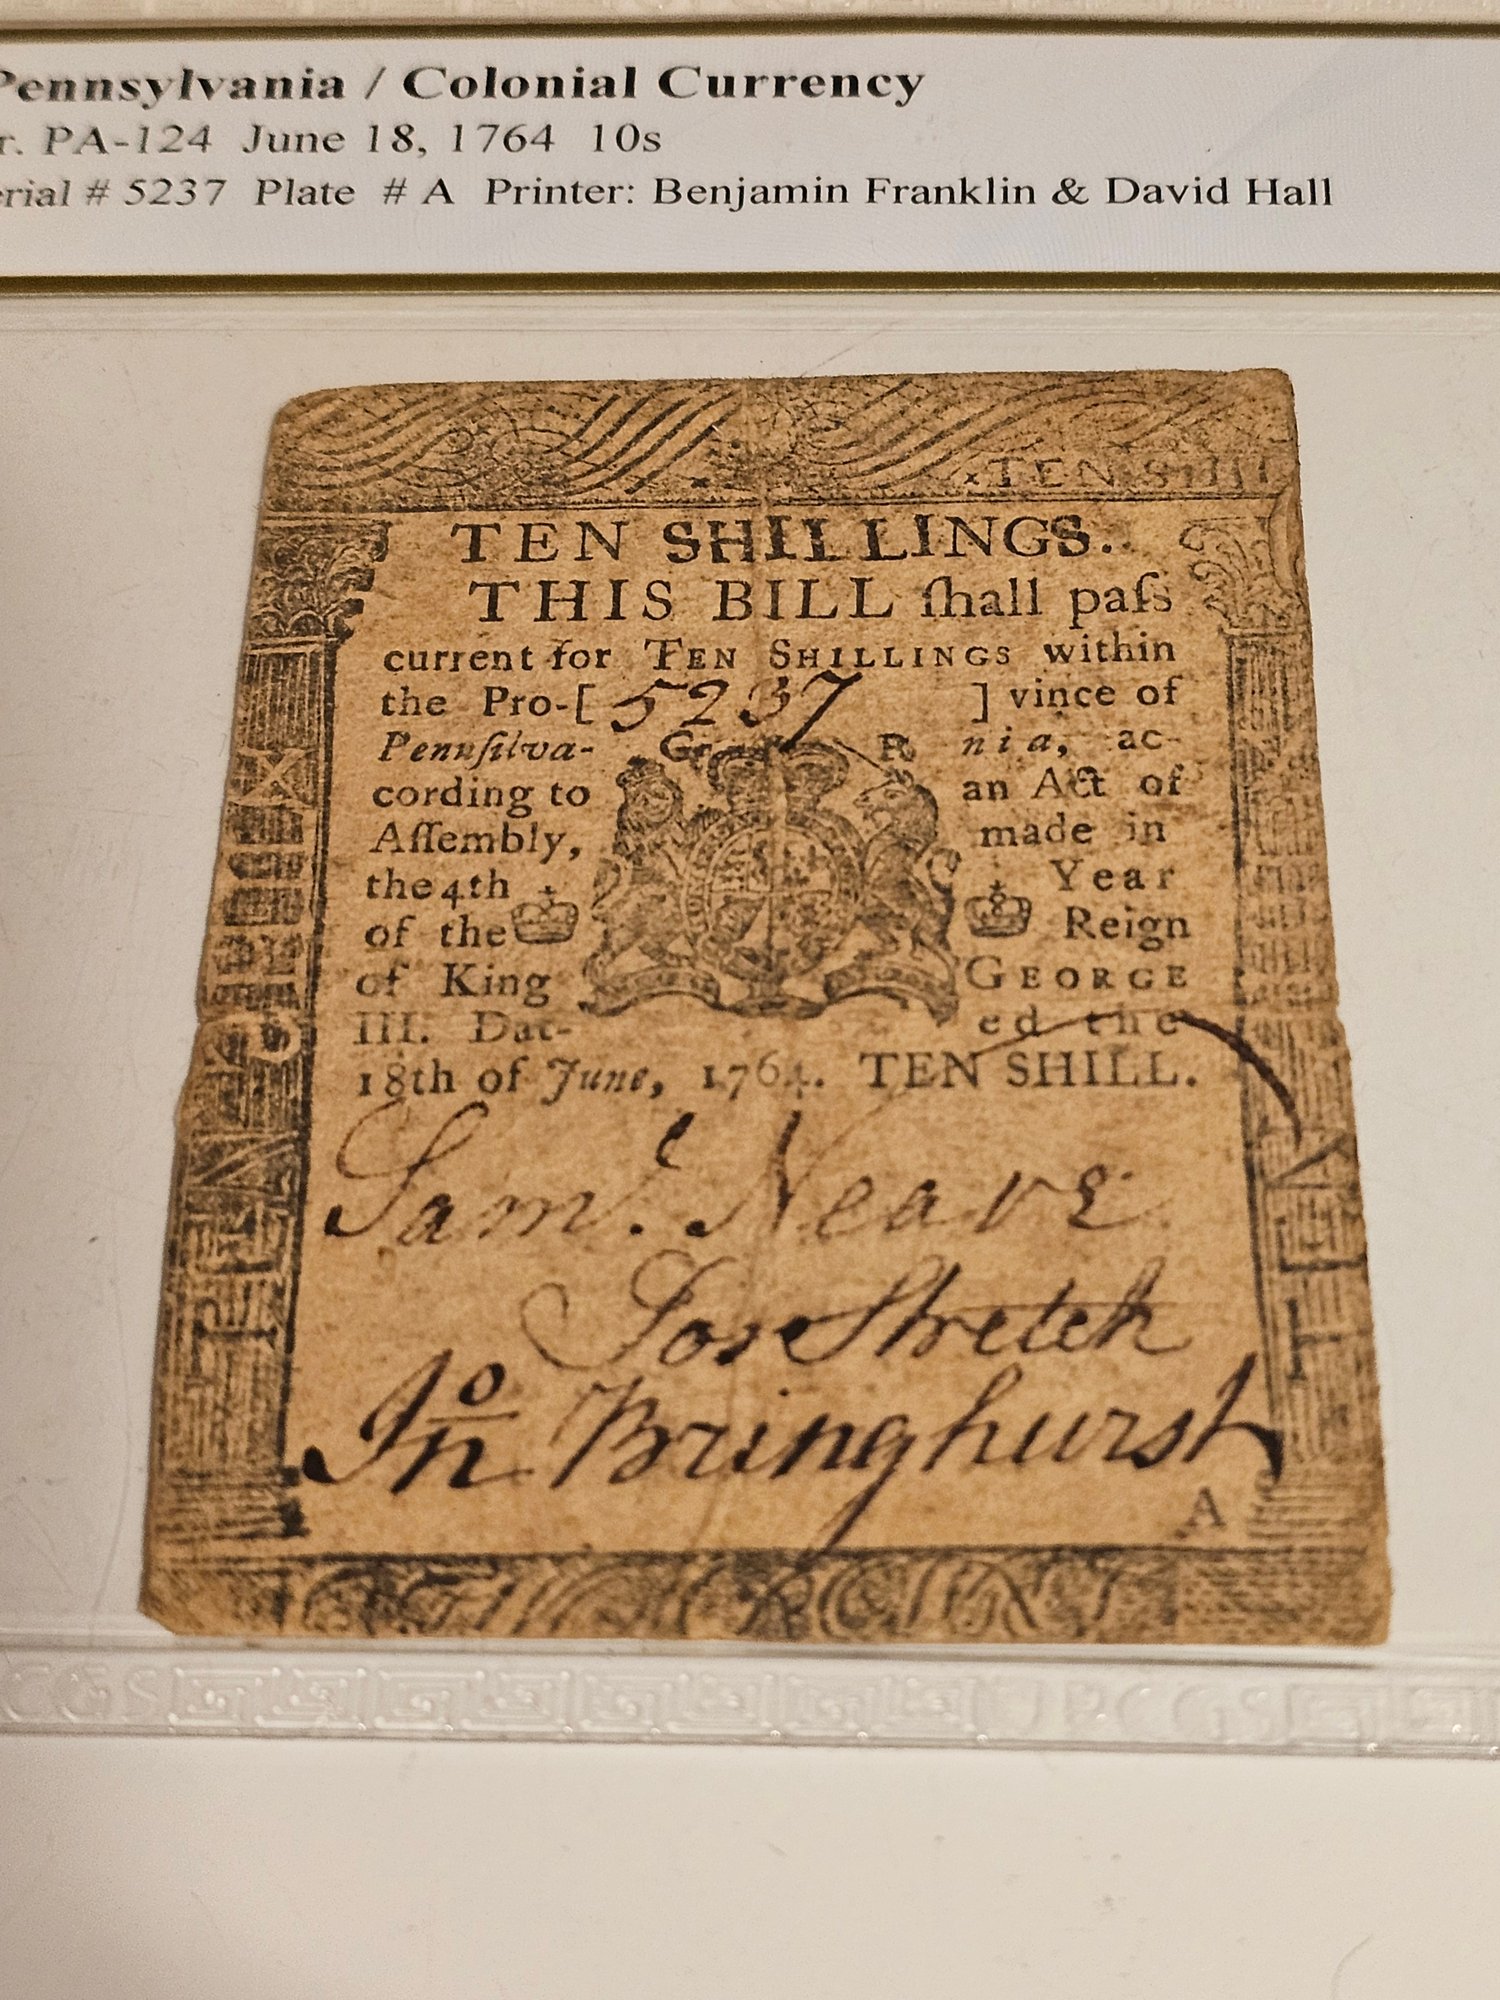 Pennsylvania / Colonial Currency
r. PA-124 June 18, 1764 10s
erial # 5237 Plate # A Printer: Benjamin Franklin & David Hall
TEN SHILL
TEN SHILLINGS.
THIS BILL ſhall paſs
current for TEN SHILLINGS within
the Pro-[ 5237 ] vince of
Pennſilva- G R nia, ac-
cording to an Act of
Aſſembly, made in
the 4th Year
of the Reign
of King GEORGE
III. Dat- ed the
18th of June, 1764. TEN SHILL.
Saml. Neave
Jos Stretch
Jno Bringhurst
A
TEN
TEN
PCGS